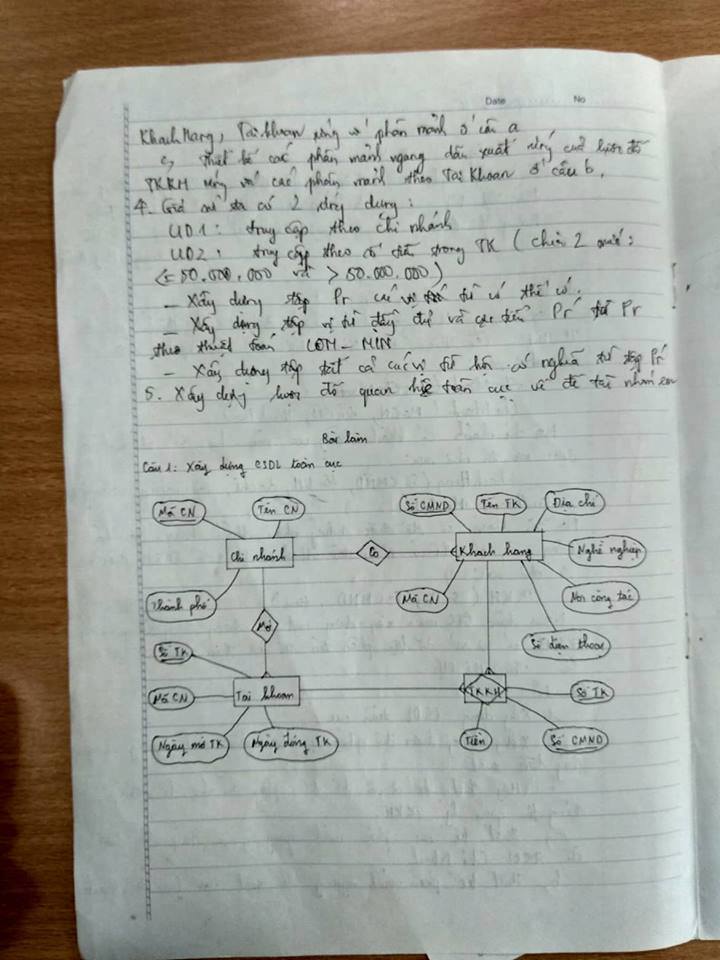 Date No
KhachHang, TaiKhoan ứng với phân mảnh ở câu a
c, thiết kế các phân mảnh ngang dẫn xuất ứng của lược đồ
TKKH ứng với các phân mảnh theo TaiKhoan ở câu b.
4. Giả sử ta có 2 ứng dụng:
UD1: truy cập theo chi nhánh
UD2: truy cập theo số tiền trong TK (chia 2 mức:
<= 50.000.000 và > 50.000.000)
- Xây dựng tập Pr các vị từ có thể có.
- Xây dựng tập vị từ đầy đủ và cực tiểu Pr' từ Pr
theo thuật toán COM-MIN
- Xây dựng tập tất cả các vị từ hội có nghĩa từ tập Pr'
5. Xây dựng lược đồ quan hệ toàn cục về đề tài nhóm em
Bài làm
Câu 1: Xây dựng CSDL toàn cục
Mã CN
Tên CN
Số CMND
Tên TK
Địa chỉ
Chi nhánh
Có
Khách hàng
Nghề nghiệp
Thành phố
Mã CN
Nơi công tác
Mở
Số điện thoại
Số TK
Mã CN
Tài khoản
TKKH
Số TK
Ngày mở TK
Ngày đóng TK
Tiền
Số CMND